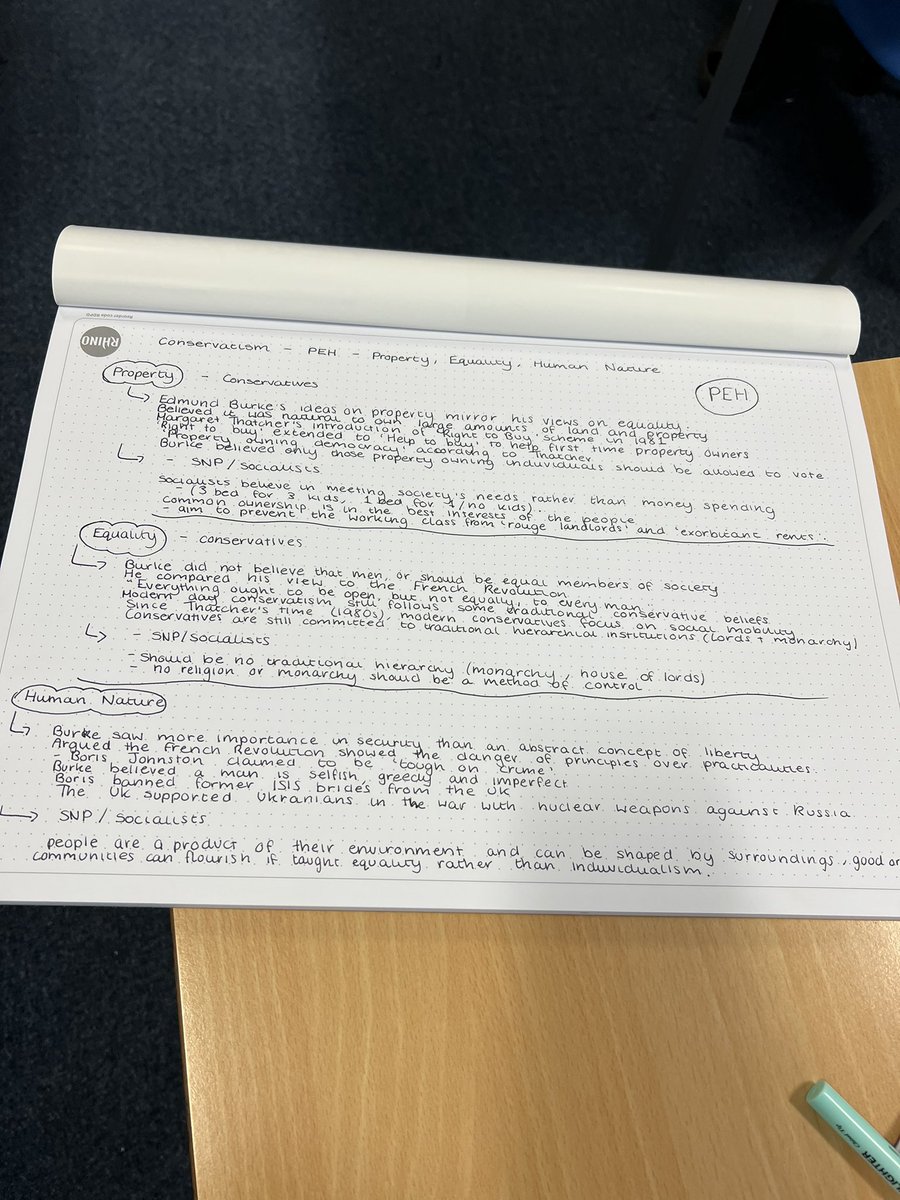 Reorder code REPO
RHINO
Conservatism - PEH - Property, Equality, Human Nature
PEH
Property - Conservatives
Edmund Burke's ideas on property mirror his views on equality.
Believed it was natural to own large amounts of land and property
Margaret Thatcher's introduction of 'Right to Buy' scheme in 1981
'Right to buy' extended to 'Help to buy' to help first time property owners
'Property owning democracy' according to Thatcher
Burke believed only those property owning individuals should be allowed to vote
- SNP/Socialists
Socialists believe in meeting society's needs rather than money spending
- (3 bed for 3 kids, 1 bed for 1/no kids).
Common ownership is in the best interests of the people
- aim to prevent the working class from 'rouge landlords' and 'exorbitant rents'.
Equality - conservatives
Burke did not believe that men, or should be equal members of society
He compared his view to the French Revolution
"Everything ought to be open, but not equally, to every man
Modern day conservatism still follows some traditional conservative beliefs
Since Thatcher's time (1980s) modern conservatives focus on social mobility
Conservatives are still committed to traditional hierarchical institutions (Lords + monarchy)
- SNP/Socialists
- Should be no traditional hierarchy (monarchy, house of lords)
- no religion or monarchy should be a method of control
Human Nature
Burke saw more importance in security than an abstract concept of liberty
Argued the French Revolution showed the danger of principles over practicalities
- Boris Johnston claimed to be 'tough on crime'.
Burke believed a man is selfish, greedy and imperfect
Boris banned former ISIS brides from the UK
The UK supported Ukranians in the war with nuclear weapons against Russia
SNP/Socialists
people are a product of their environment and can be shaped by surroundings, good or
communities can flourish if taught equality rather than individualism.